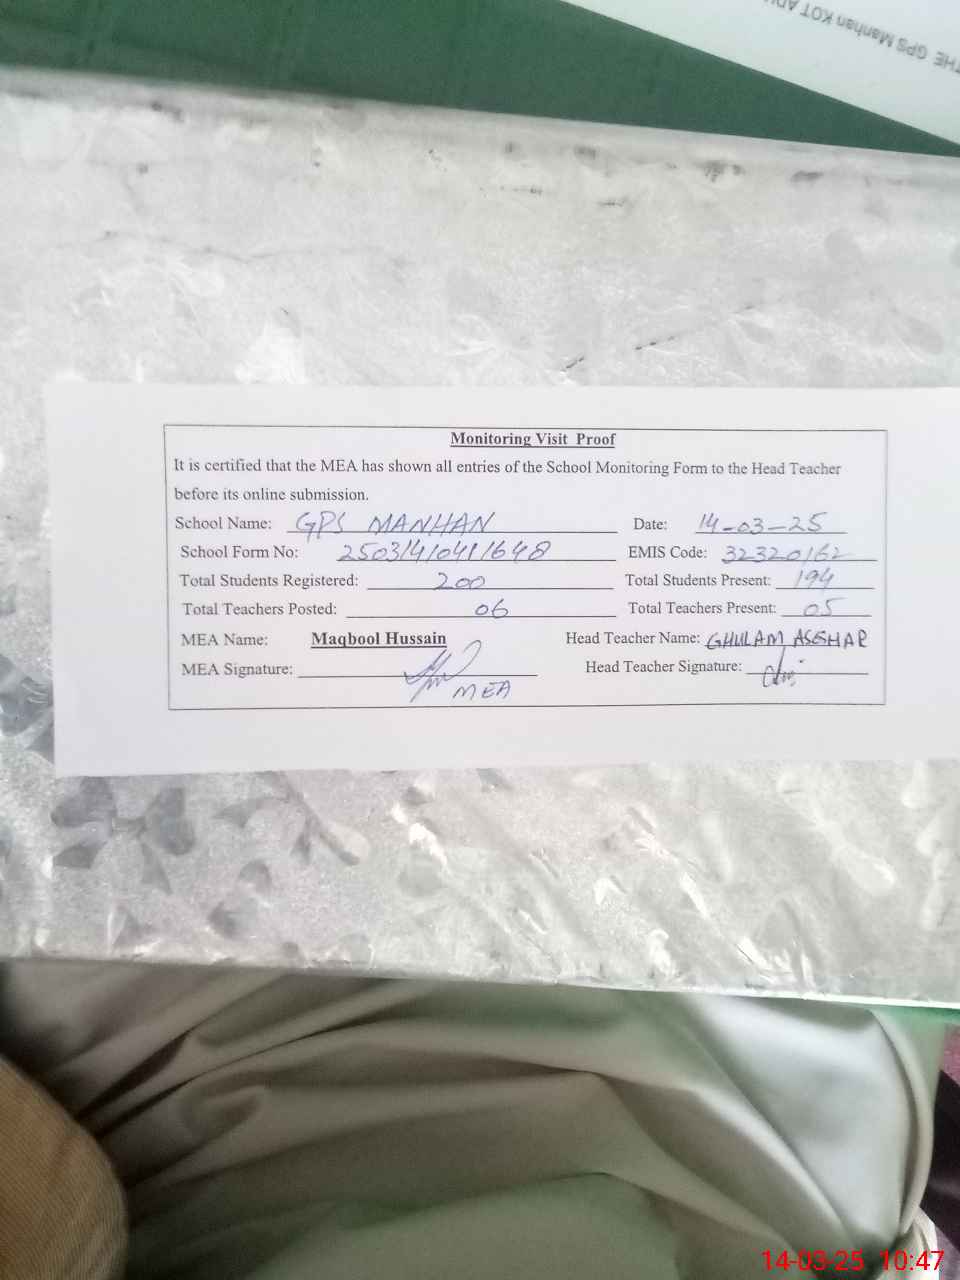 THE GPS Manhan KOT ADU
Monitoring Visit Proof
It is certified that the MEA has shown all entries of the School Monitoring Form to the Head Teacher
before its online submission.
School Name: GPS MANHAN Date: 14-03-25
School Form No: 25031410411648 EMIS Code: 32320162
Total Students Registered: 200 Total Students Present: 194
Total Teachers Posted: 06 Total Teachers Present: 05
MEA Name: Maqbool Hussain Head Teacher Name: GHULAM ASGHAR
MEA Signature: MEA Head Teacher Signature:
14-03-25 10:47